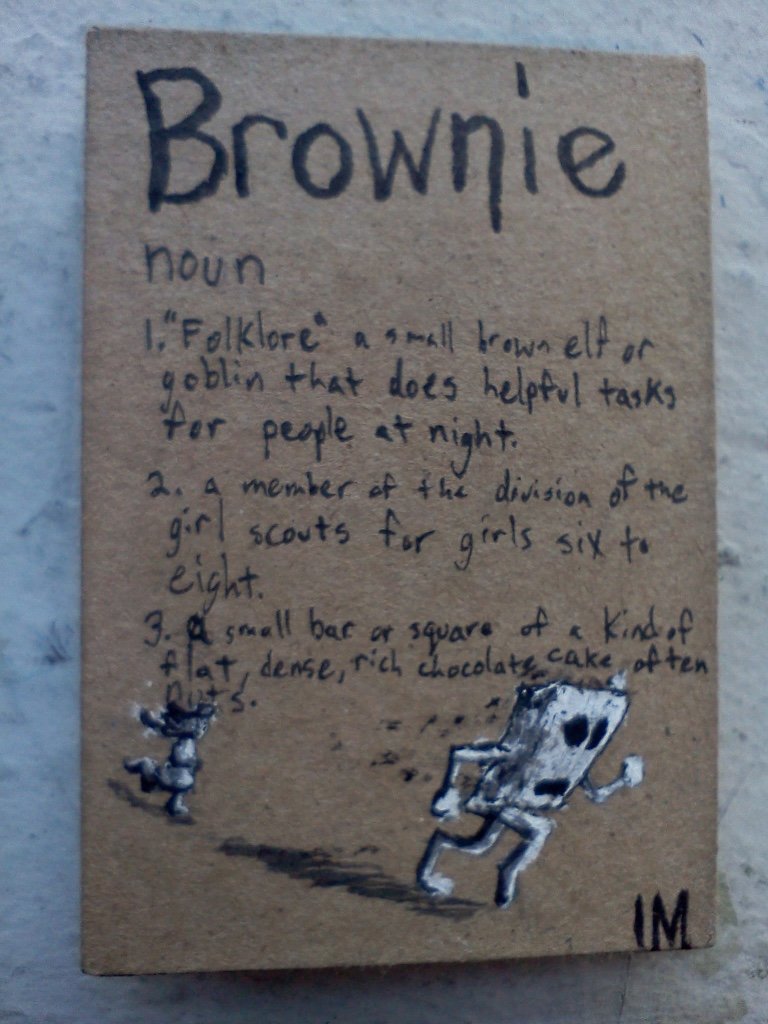 Brownie
noun
1. "Folklore" a small brown elf or
goblin that does helpful tasks
for people at night.
2. a member of the division of the
girl scouts for girls six to
eight.
3. a small bar or square of a kind of
flat, dense, rich chocolate cake often
nuts.
IM